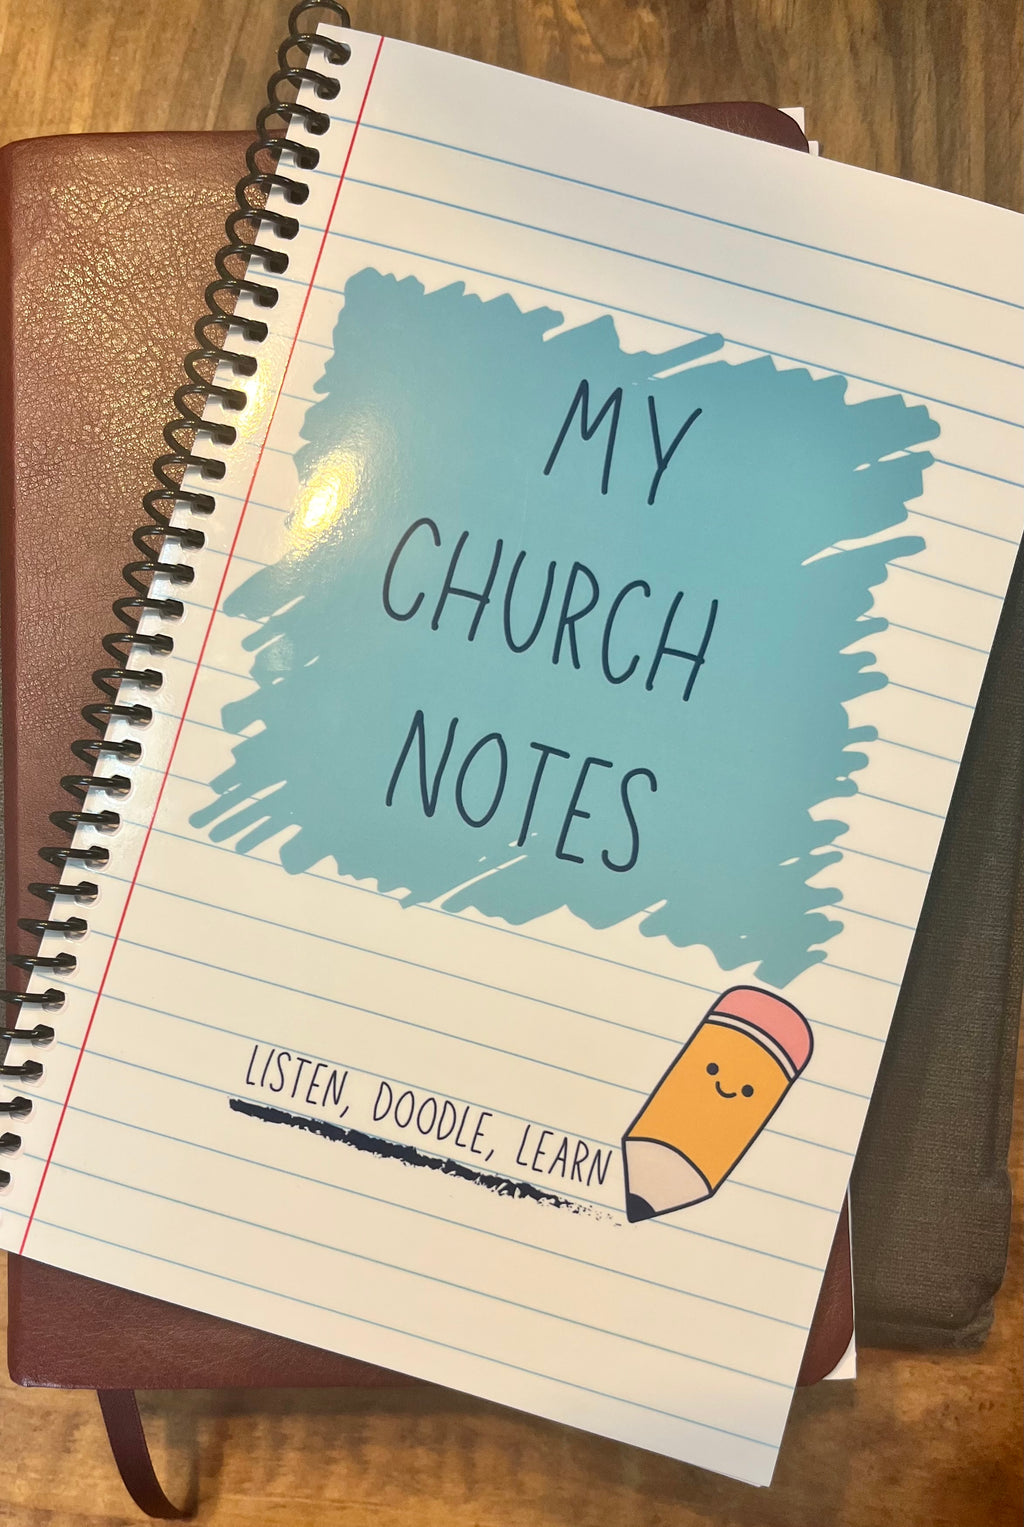 MY
CHURCH
NOTES
LISTEN, DOODLE, LEARN